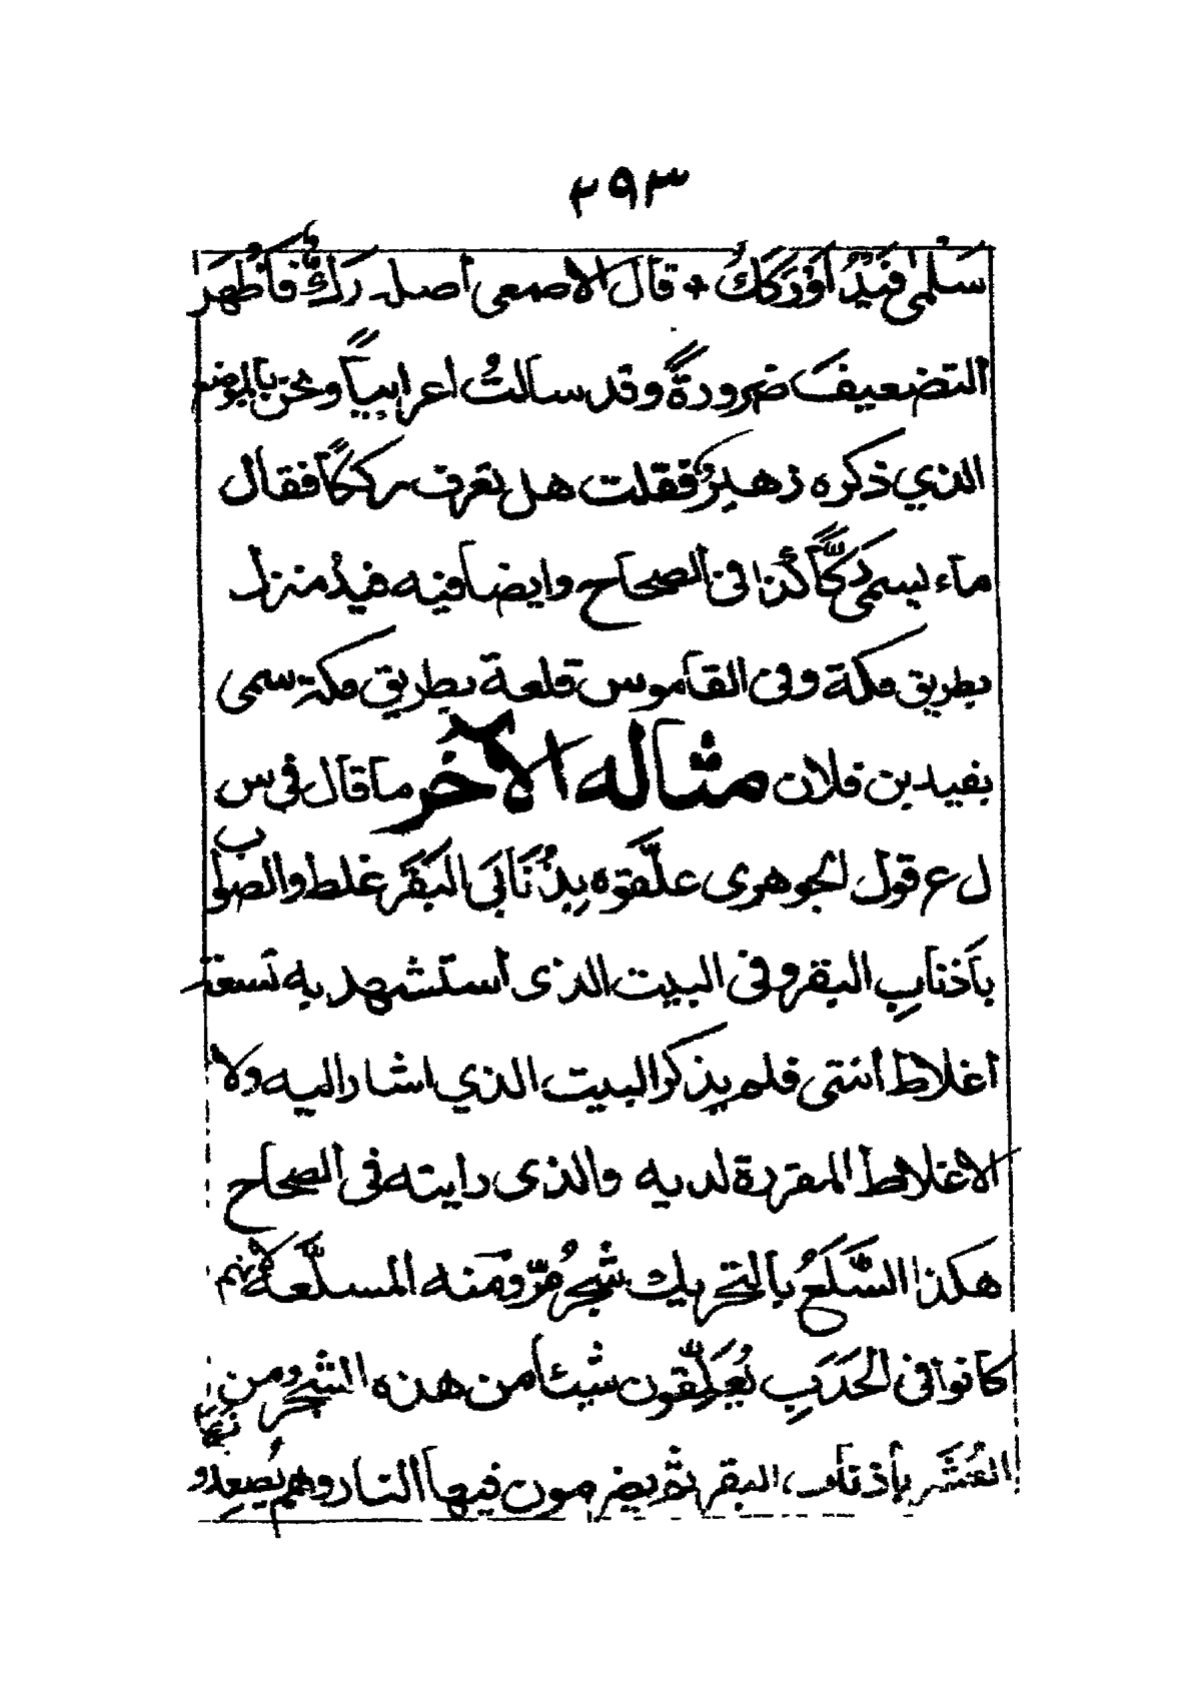 ٢٩٣
سَلْمى فَيْدُ اَوْرَكَكُ * قال الاصمعى أصله رَكٌّ فاَظْهَرَ
التضعيفَ ضرورةً وقد سالتُ اعرابياً ونحن بالموضع
الذي ذكره زهيرٌ فقلت هل تعرف رككاً فقال
ماء يسمى رَكًّا كذا فى الصحاح وايضا فيه فيدُ منزل
بطريق مكة وفى القاموس قلعة بطريق مكة سمى
بفيد بن فلان مثاله الآخر ما قال فى س
ل ع قول الجوهرى علَّقوه بِذُنَابَى البَقَر غلط والصواب
بأَذنابِ البقر وفى البيت الذى أستشهد به تسعة
اغلاط أنتهى فلم يذكر البيت الذي اشار اليه ولا
الاغلاط المقررة لديه والذى رايته فى الصحاح
هكذا السَّلَعُ بالتحريك شجرٌ مُرٌّ ومنه المسلَّعة لأنهم
كانوا فى الجَدَبِ يُعَلِّقون شيئا من هذه الشجر ومن
العُشَر بأذناب البقر ثم يضرمون فيها النار وهم يُصعِدو
نَها